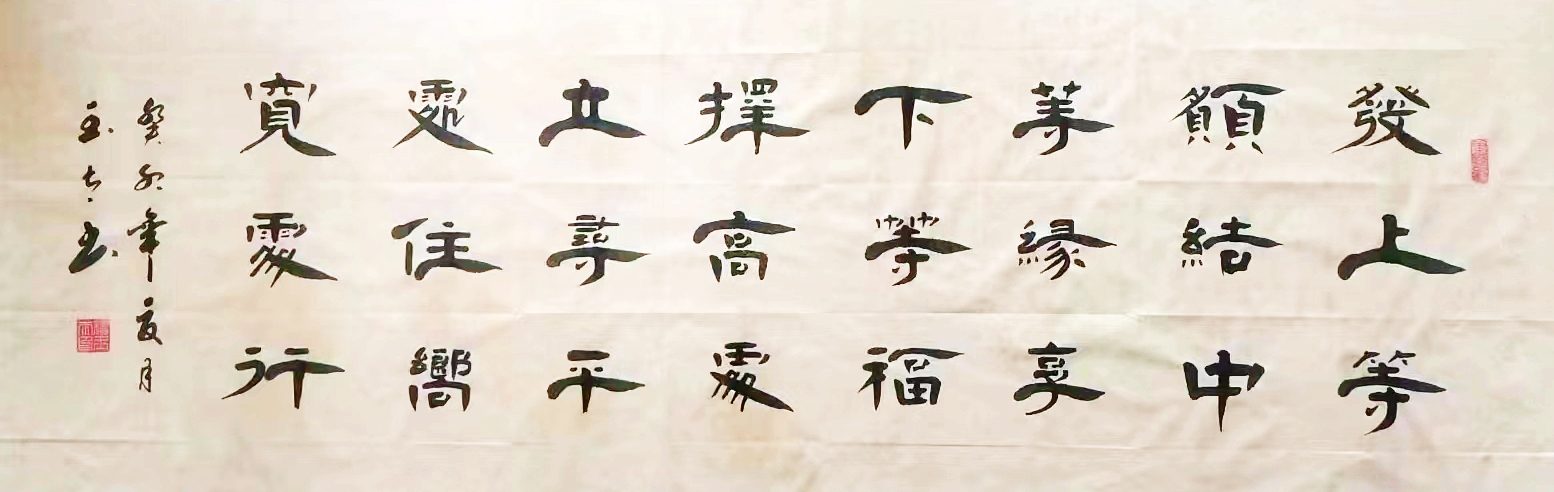 發上等
願結中
等緣享
下等福
擇高處
立尋平
處住嚮
寬處行
癸卯年夏月
書